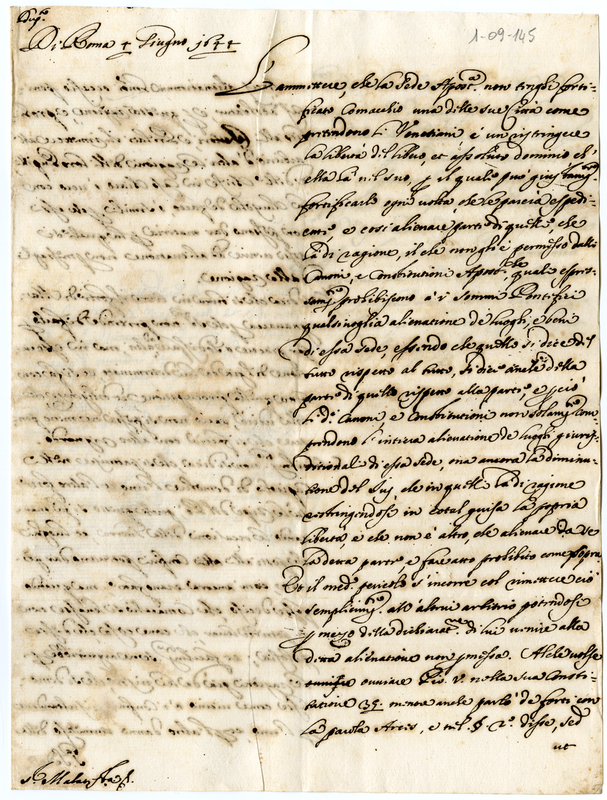 Dup.
Di Roma 4 Giugno 1644
1-09-145
L'ammettere, che la Sede Apost.ca non tenghi forti-
ficato Comacchio una delle sue Città come
pretendono li Venetiani è un ristringere
la libertà del libero, et assoluto dominio ch'
ella hà nel suo, per il quale può giustam.te
fortificarlo ogni volta, che le pareva espedi-
ente e così alienare parte di quello, che
hà di ragione, il che non gli è permesso dalli
Canoni, e Constitutioni Apost.che le quali espres-
sam.te prohibiscono à i Sommi Pontefici
qualsivoglia alienatione de luoghi, e beni
di essa Sede, essendo che quello si dice del
tutto rispetto al tutto, si dice anche della
parte di quello rispetto alla parte e perciò
li d.i Canoni e Constitutioni non solam.te com-
prendono l'intiera alienatione de luoghi giuris-
dicionali di essa Sede, ma ancora la diminu-
tione del Jus, che in quelli hà di ragione
restringendosi in cotal guisa la propria
libertà, e che non è altro, che alienare da se
la detta parte, e fare atto prohibito come sopra
Et il med.o pericolo s'incorre col rimettere ciò
semplicem.te all'altrui arbitrio potendosi
per mezo della dichiarat.ne di lui venire alla
detta alienatione non permessa. Al che volse
ovviare Pio V. nella sua Consti-
tutione 35. mentre anche parlò de forti con
la parola Arces, e nel §. 2.o disse, sed
ut